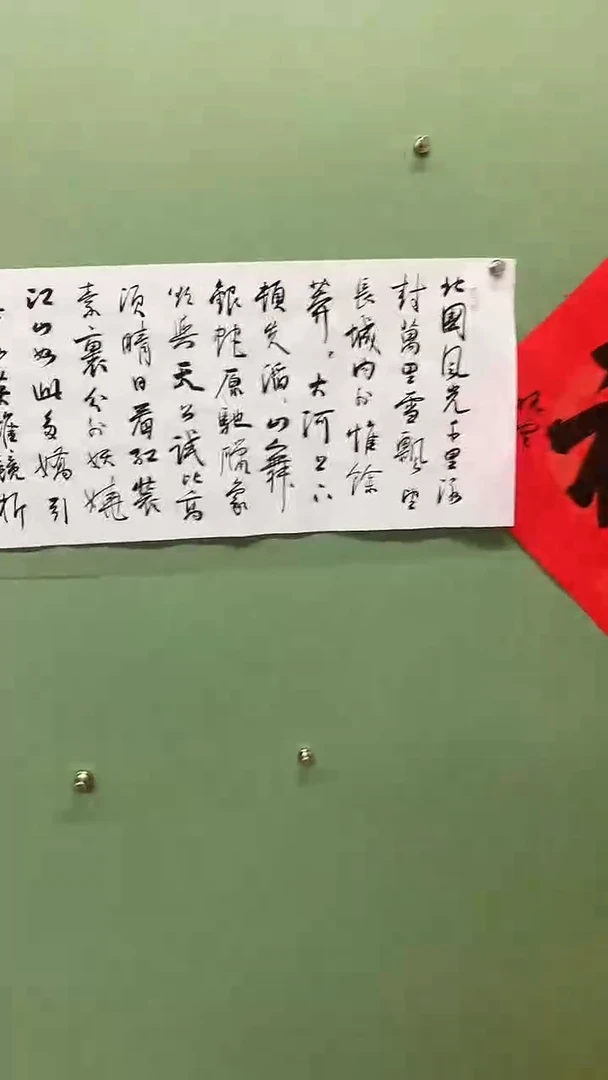 北國風光千里冰
封萬里雪飄望
長城内外惟餘
莽〻大河上下
頓失滔〻山舞
銀蛇原馳臘象
欲與天公試比高
須晴日看紅裝
素裹分外妖嬈
江山如此多嬌引
英雄競折